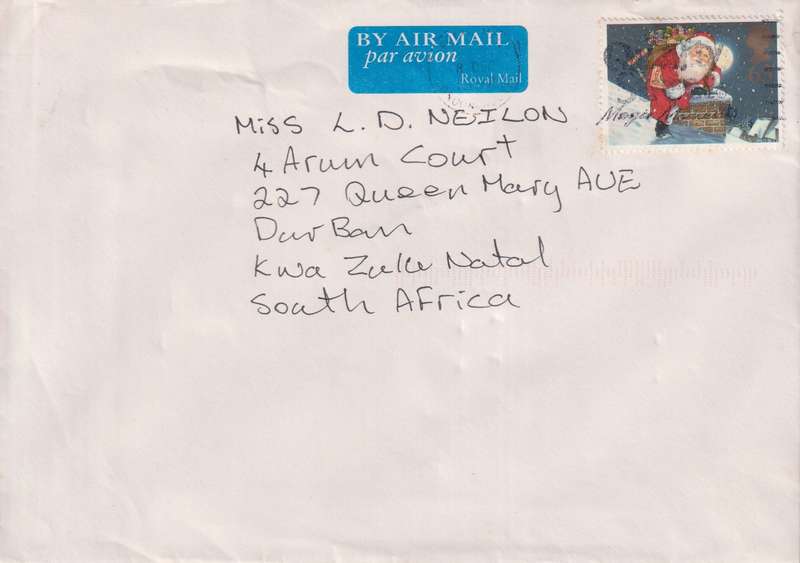 BY AIR MAIL
par avion
Royal Mail
Miss L. D. NEILON
4 Arum Court
227 Queen Mary AVE
DurBan
Kwa Zulu Natal
South Africa